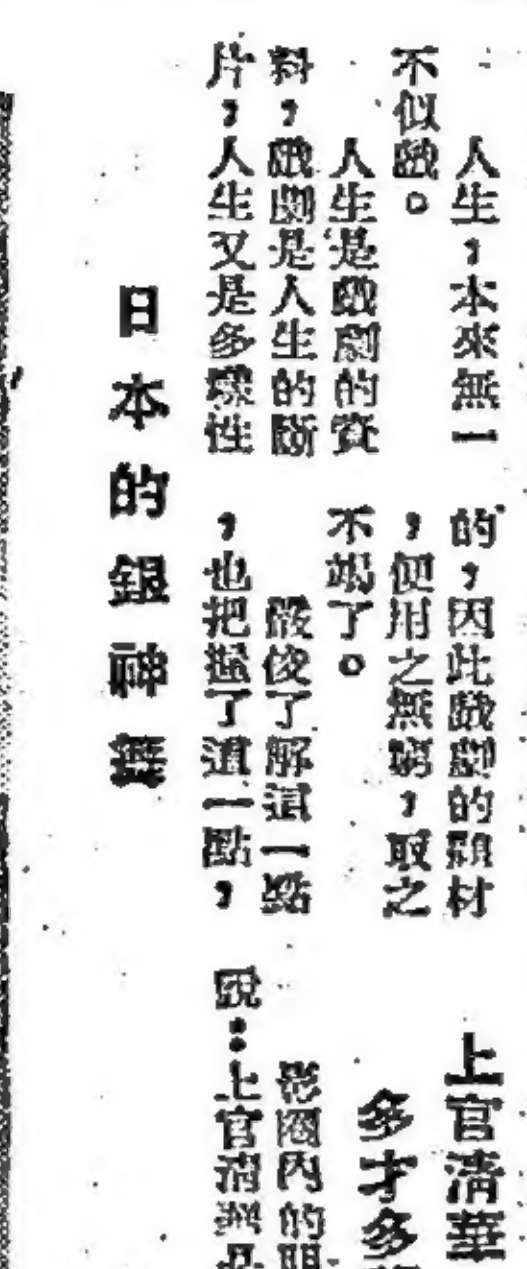 人生,本來無一
不似戲。
人生是戲劇的資
料,戲劇是人生的斷
片,人生又是多樣性
的,因此戲劇的題材
,便用之無窮,取之
不竭了。
嚴俊了解這一點
,也把握了這一點,
日本的銀神舞
上官清華
多才多
影圈內的
說:上官清華是